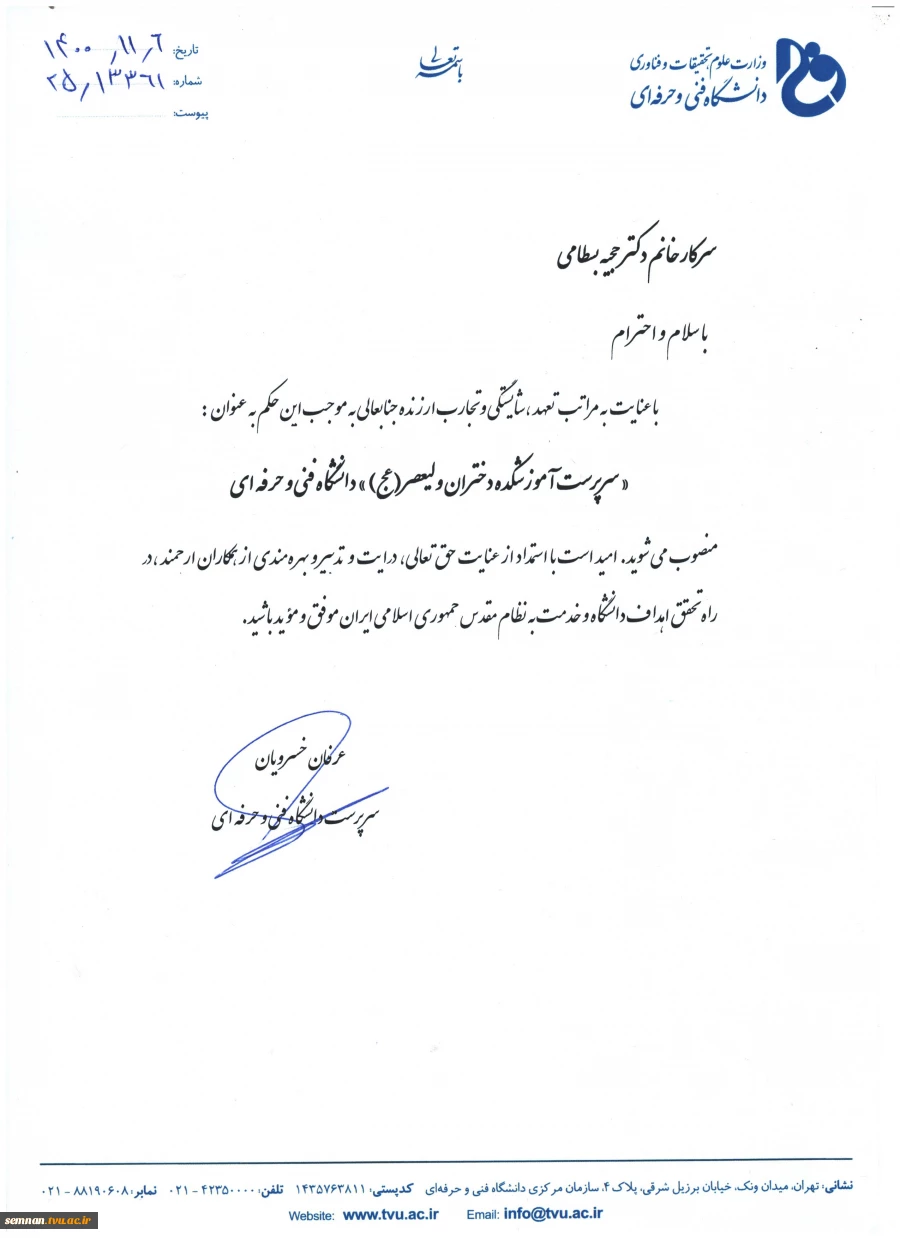 باسمه تعالی
وزارت علوم، تحقیقات و فناوری
دانشگاه فنی و حرفه‌ای
تاریخ: ۱۴۰۰/۱۱/۶
شماره: ۲۵/۱۳۳۶۱
پیوست:
سرکار خانم دکتر حجیه بسطامی
با سلام و احترام
با عنایت به مراتب تعهد، شایستگی و تجارب ارزنده جنابعالی به موجب این حکم به عنوان :
« سرپرست آموزشکده دختران ولیعصر(عج)» دانشگاه فنی و حرفه ای
منصوب می شوید. امید است با استمداد از عنایت حق تعالی، درایت و تدبیر و بهره مندی از همکاران ارجمند ،در
راه تحقق اهداف دانشگاه و خدمت به نظام مقدس جمهوری اسلامی ایران موفق و مؤید باشید.
عرفان خسرویان
سرپرست دانشگاه فنی و حرفه ای
نشانی: تهران، میدان ونک، خیابان برزیل شرقی، پلاک ۴، سازمان مرکزی دانشگاه فنی و حرفه‌ای کدپستی: ۱۴۳۵۷۶۳۸۱۱ تلفن: ۴۲۳۵۰۰۰۰ - ۰۲۱ نمابر: ۸۸۱۹۰۶۰۸ - ۰۲۱
Website: www.tvu.ac.ir Email: info@tvu.ac.ir
semnan.tvu.ac.ir